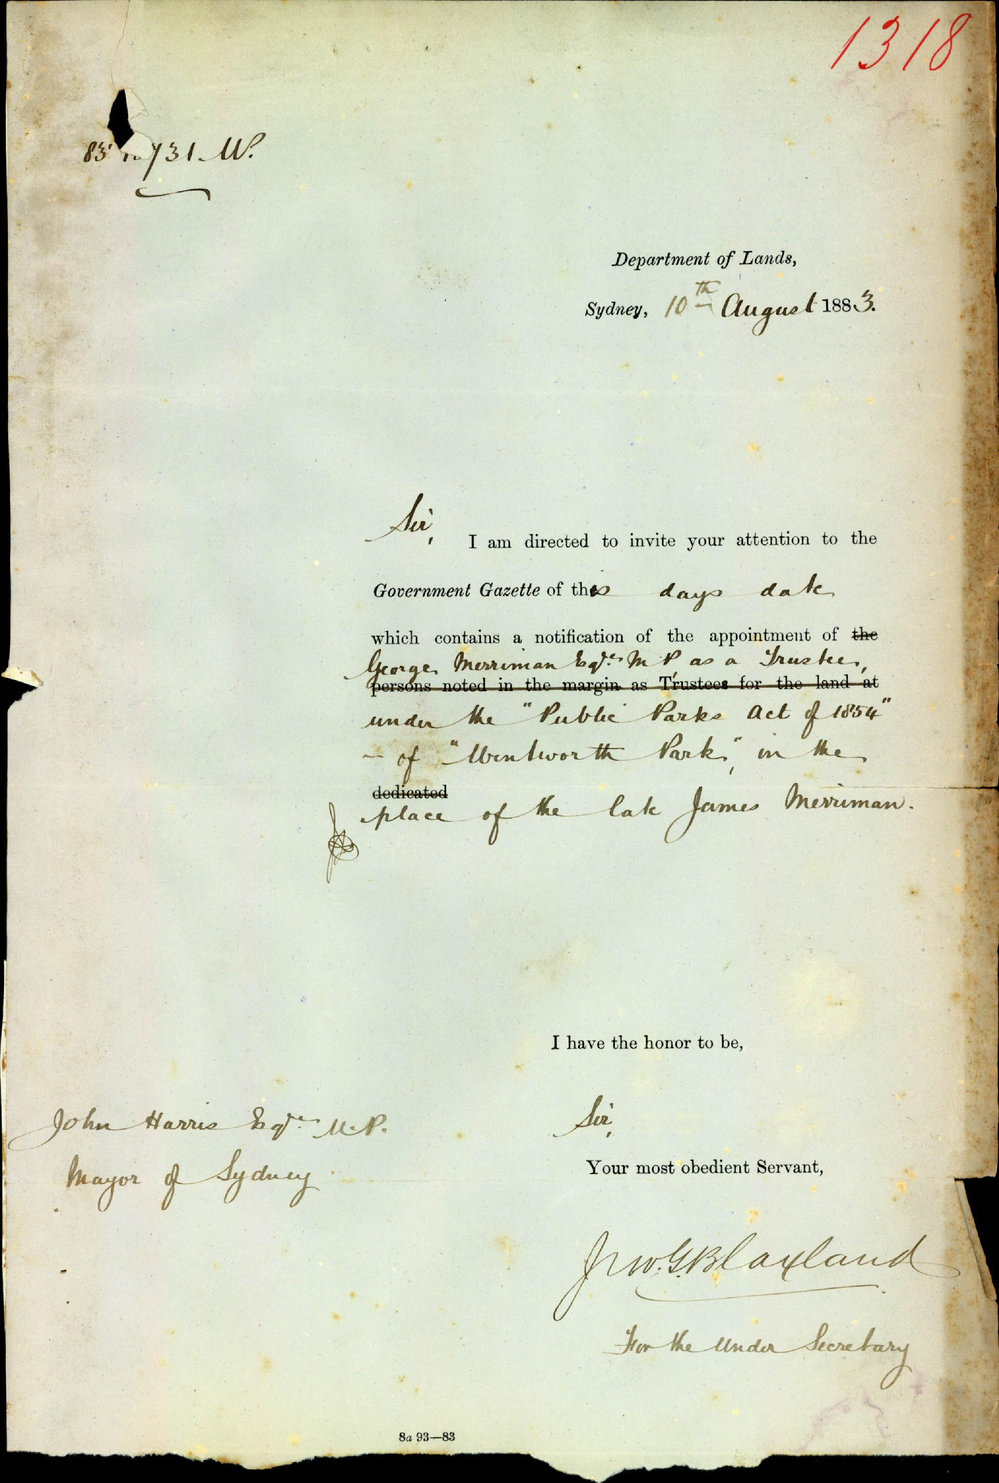 1318
83 731. M.
Department of Lands,
Sydney, 10th August 1883.
Sir,
I am directed to invite your attention to the
Government Gazette of this days date
which contains a notification of the appointment of the
George Merriman Esqre. M P as a Trustee,
persons noted in the margin as Trustees for the land at
under the "Public Parks Act of 1854"
- of "Wentworth Park", in the
dedicated
place of the late James Merriman.
I have the honor to be,
Sir,
John Harris Esqre. M.P.
Mayor of Sydney
Your most obedient Servant,
Blaxland
For the Under Secretary
8a 93—83